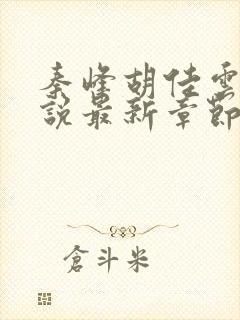 秦峰胡佳雲
說最新章節
倉斗米